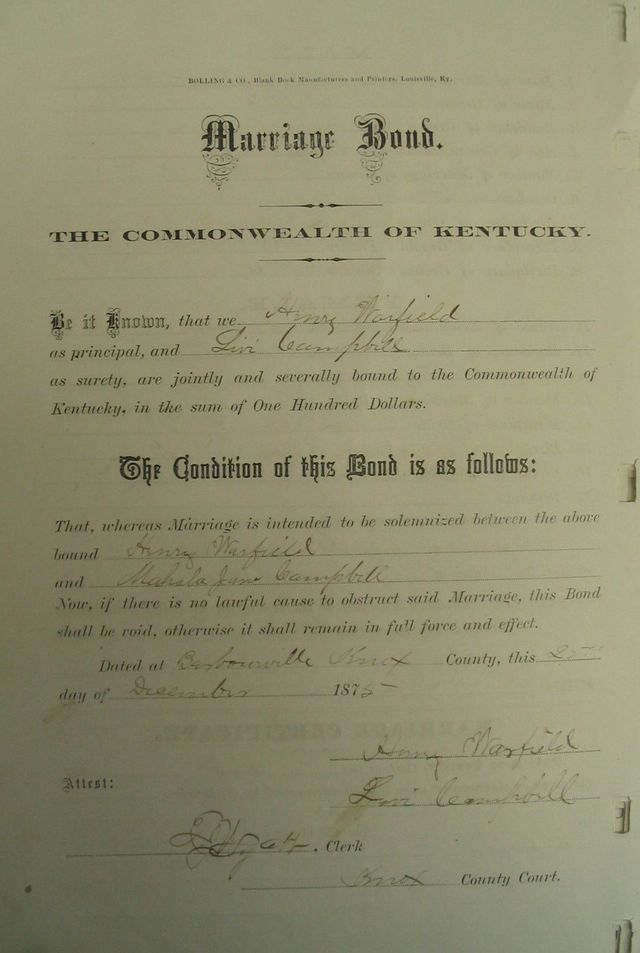 BOLLING & CO., Blank Book Manufacturers and Printers, Louisville, Ky.
Marriage Bond.
THE COMMONWEALTH OF KENTUCKY.
Be it Known, that we Henry Warfield
as principal, and Livi Campbill
as surety, are jointly and severally bound to the Commonwealth of
Kentucky, in the sum of One Hundred Dollars.
The Condition of this Bond is as follows:
That, whereas Marriage is intended to be solemnized between the above
bound Henry Warfield
and Mahala Jane Campbill
Now, if there is no lawful cause to obstruct said Marriage, this Bond
shall be void, otherwise it shall remain in full force and effect.
Dated at Barbourville Knox County, this 25
day of December 1875
Henry Warfield
Attest:
Livi Campbill
Clerk
Knox County Court.